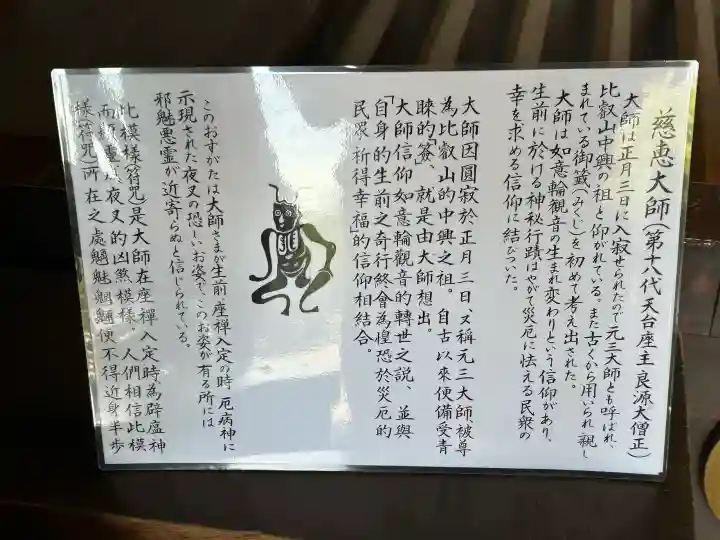 慈恵大師(第十八代天台座主良源大僧正)
大師は正月三日に入寂せられたので元三大師とも呼ばれ、
比叡山中興の祖と仰がれている。また古くから用いられ親し
まれている御籤(みくじ)を初めて考え出された。
大師は如意輪観音の生まれ変わりという信仰があり、
生前に於ける神秘行蹟はやがて災厄に怯える民衆の
幸を求める信仰に結びついた。
大師因圓寂於正月三日、又稱元三大師、被尊
為比叡山的中興之祖。自古以來便備受青
睞的籤、就是由大師想出。
大師信仰如意輪觀音的轉世之説、並與
「自身的生前之奇行終會為惶恐於災厄的
民眾祈得幸福」的信仰相結合。
このおすがたは大師さまが生前、座禅入定の時、厄病神に
示現された夜叉の恐しいお姿で、このお姿が有る所には
邪魅悪霊が近寄らぬと信じられている。
此模様符咒是大師在座禪入定時為辟瘟神
而顯靈為夜叉的凶煞模樣、人們相信此模
樣(符咒)所在之處魑魅魍魎便不得近身半步